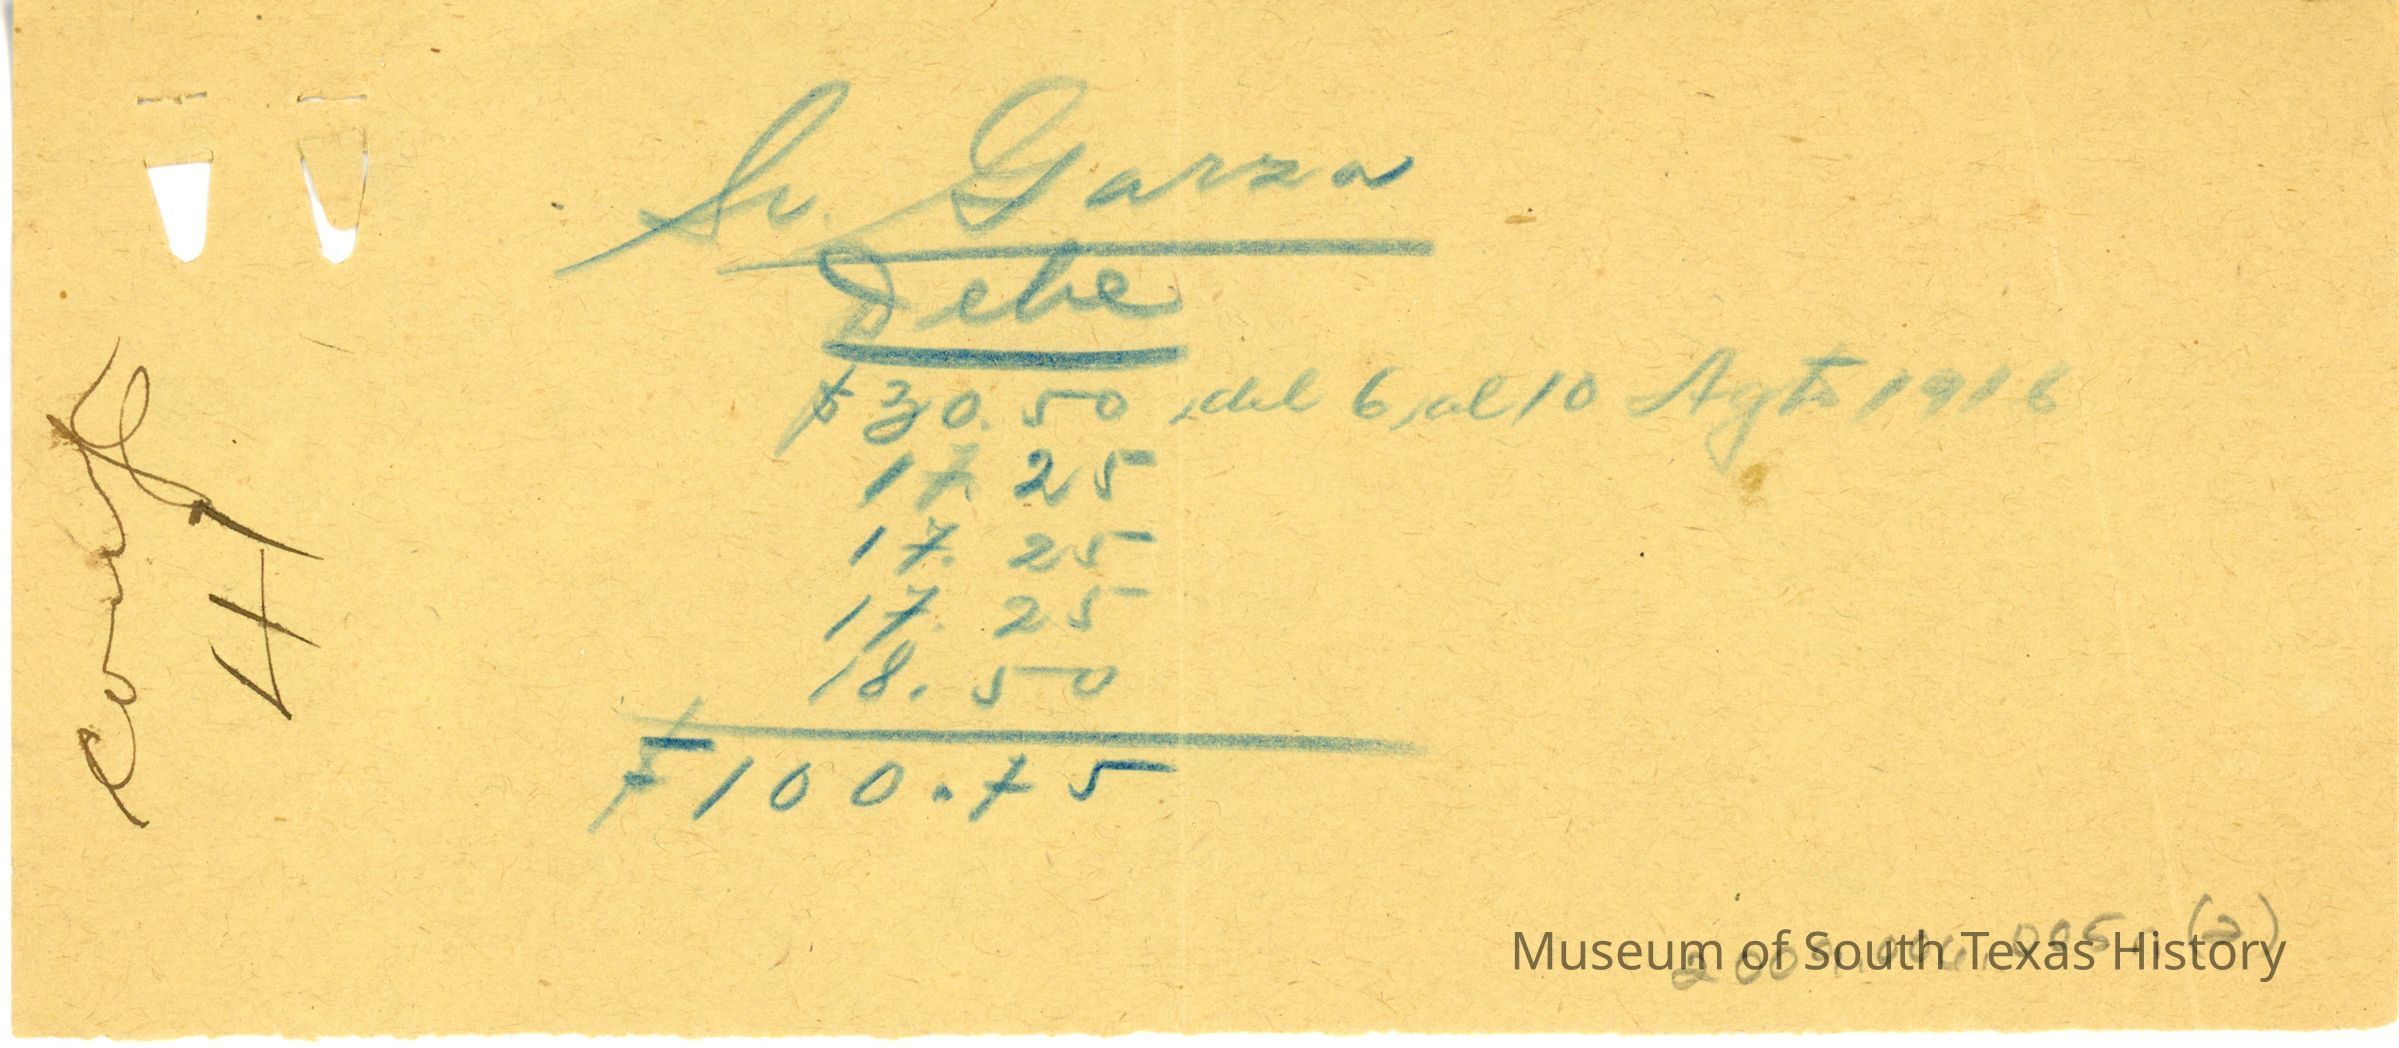 Sr. Garza
Debe
$30.50, del 6, al 10 Agto 1916
17.25
17.25
17.25
18.50
$100.75
41
Museum of South Texas History